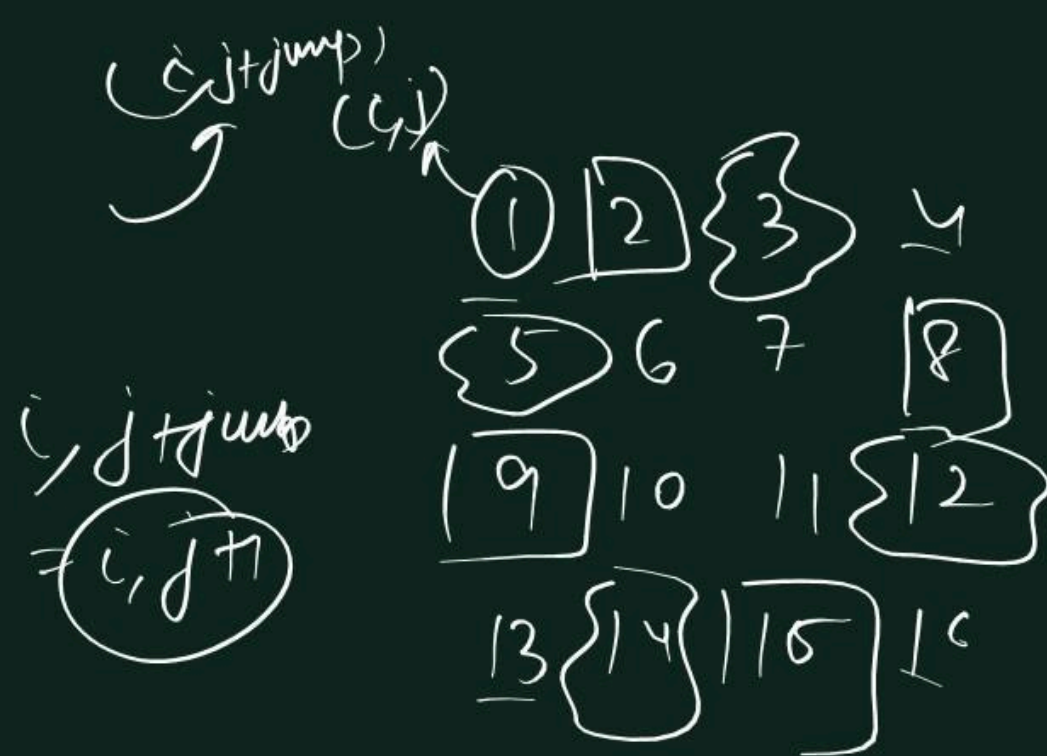 (i, j+jump)
(i, j)
1 2 3 4
5 6 7 8
9 10 11 12
13 14 15 16
i, j+jump
= i, j+1